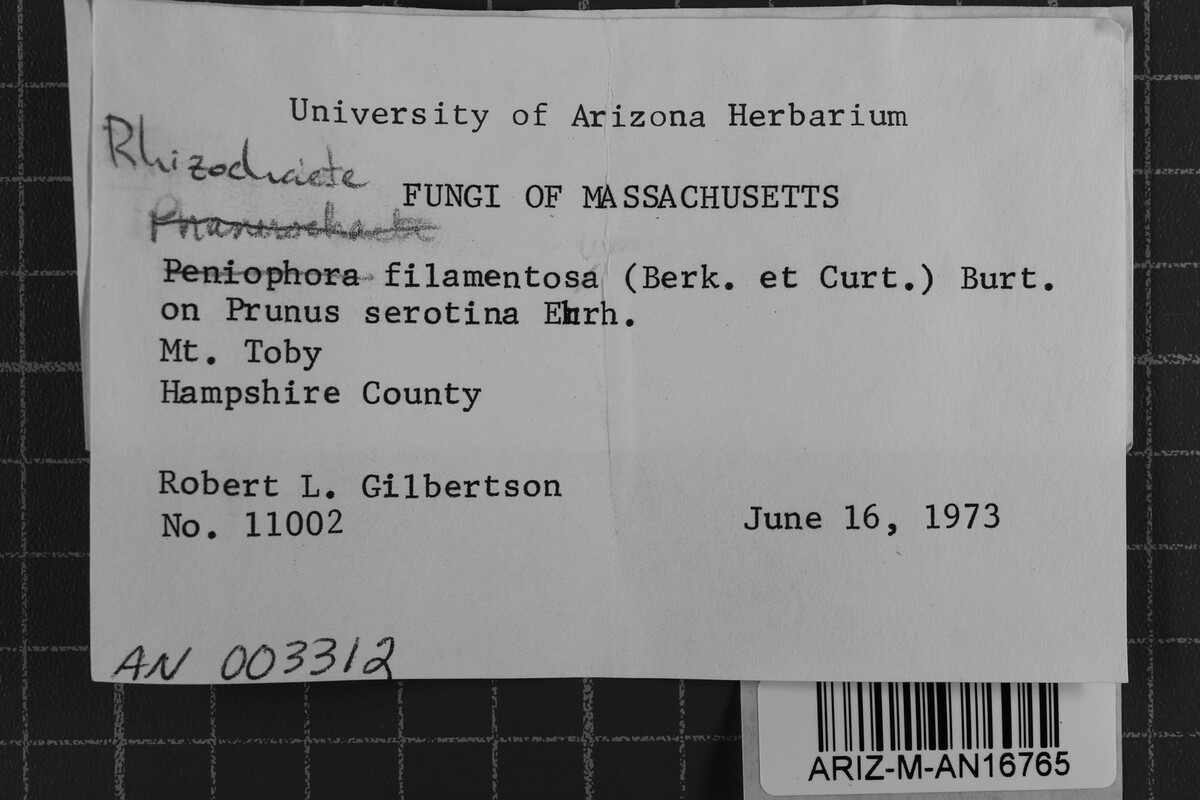 University of Arizona Herbarium
Rhizochaete
FUNGI OF MASSACHUSETTS
Phanerochaete
Peniophora filamentosa (Berk. et Curt.) Burt.
on Prunus serotina Ehrh.
Mt. Toby
Hampshire County
Robert L. Gilbertson
No. 11002
June 16, 1973
AN 003312
ARIZ-M-AN16765